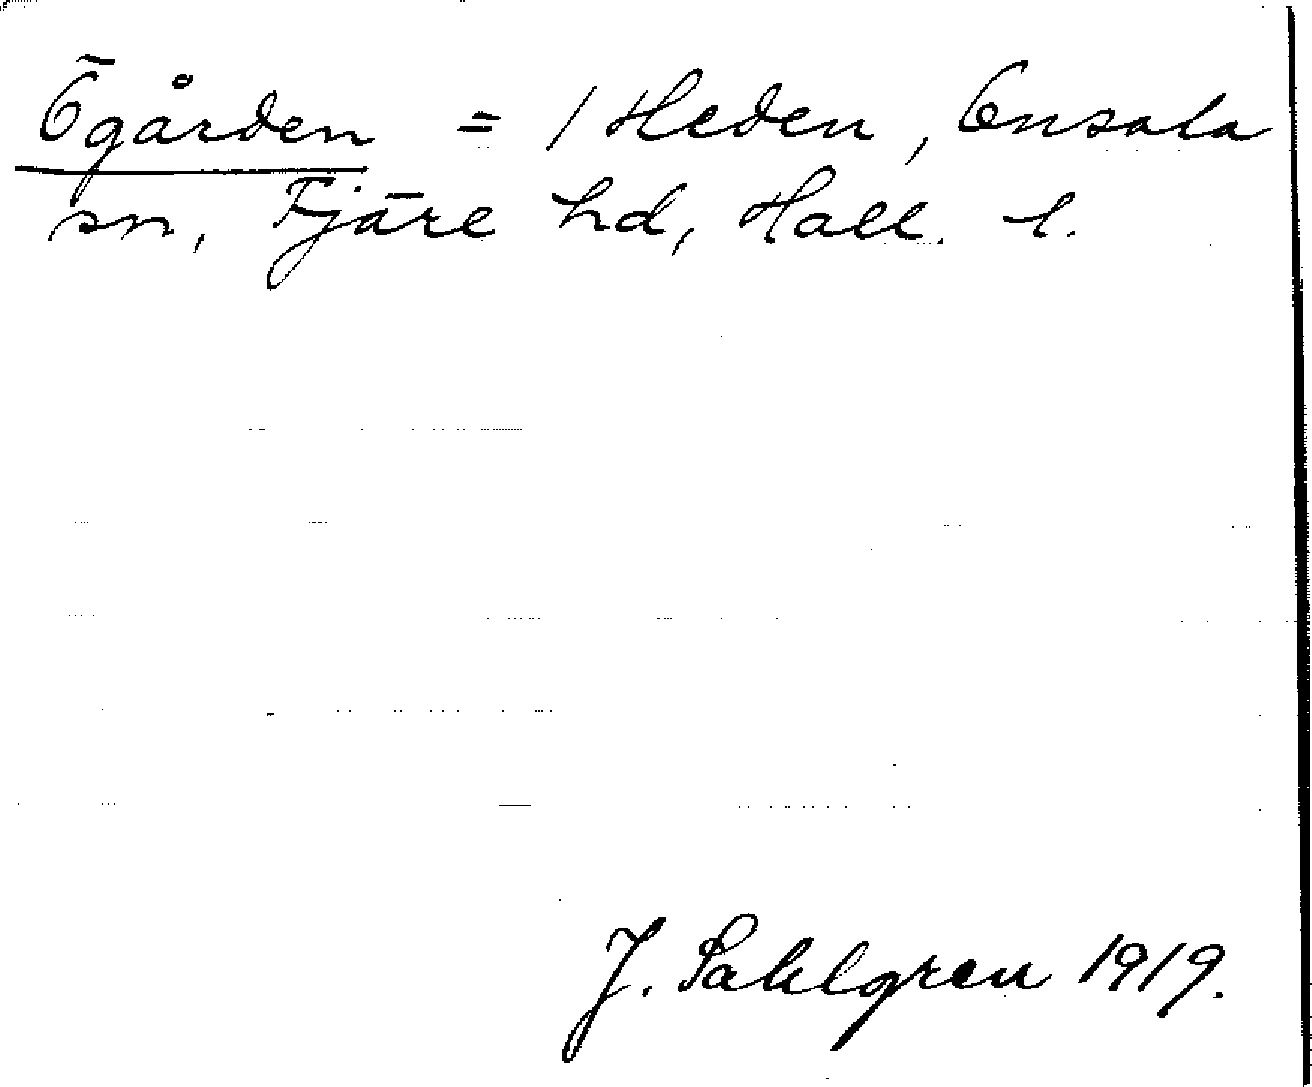 Ögården = 1 Heden, Onsala
sn, Fjäre hd, Hall. l.
J. Sahlgren 1919.